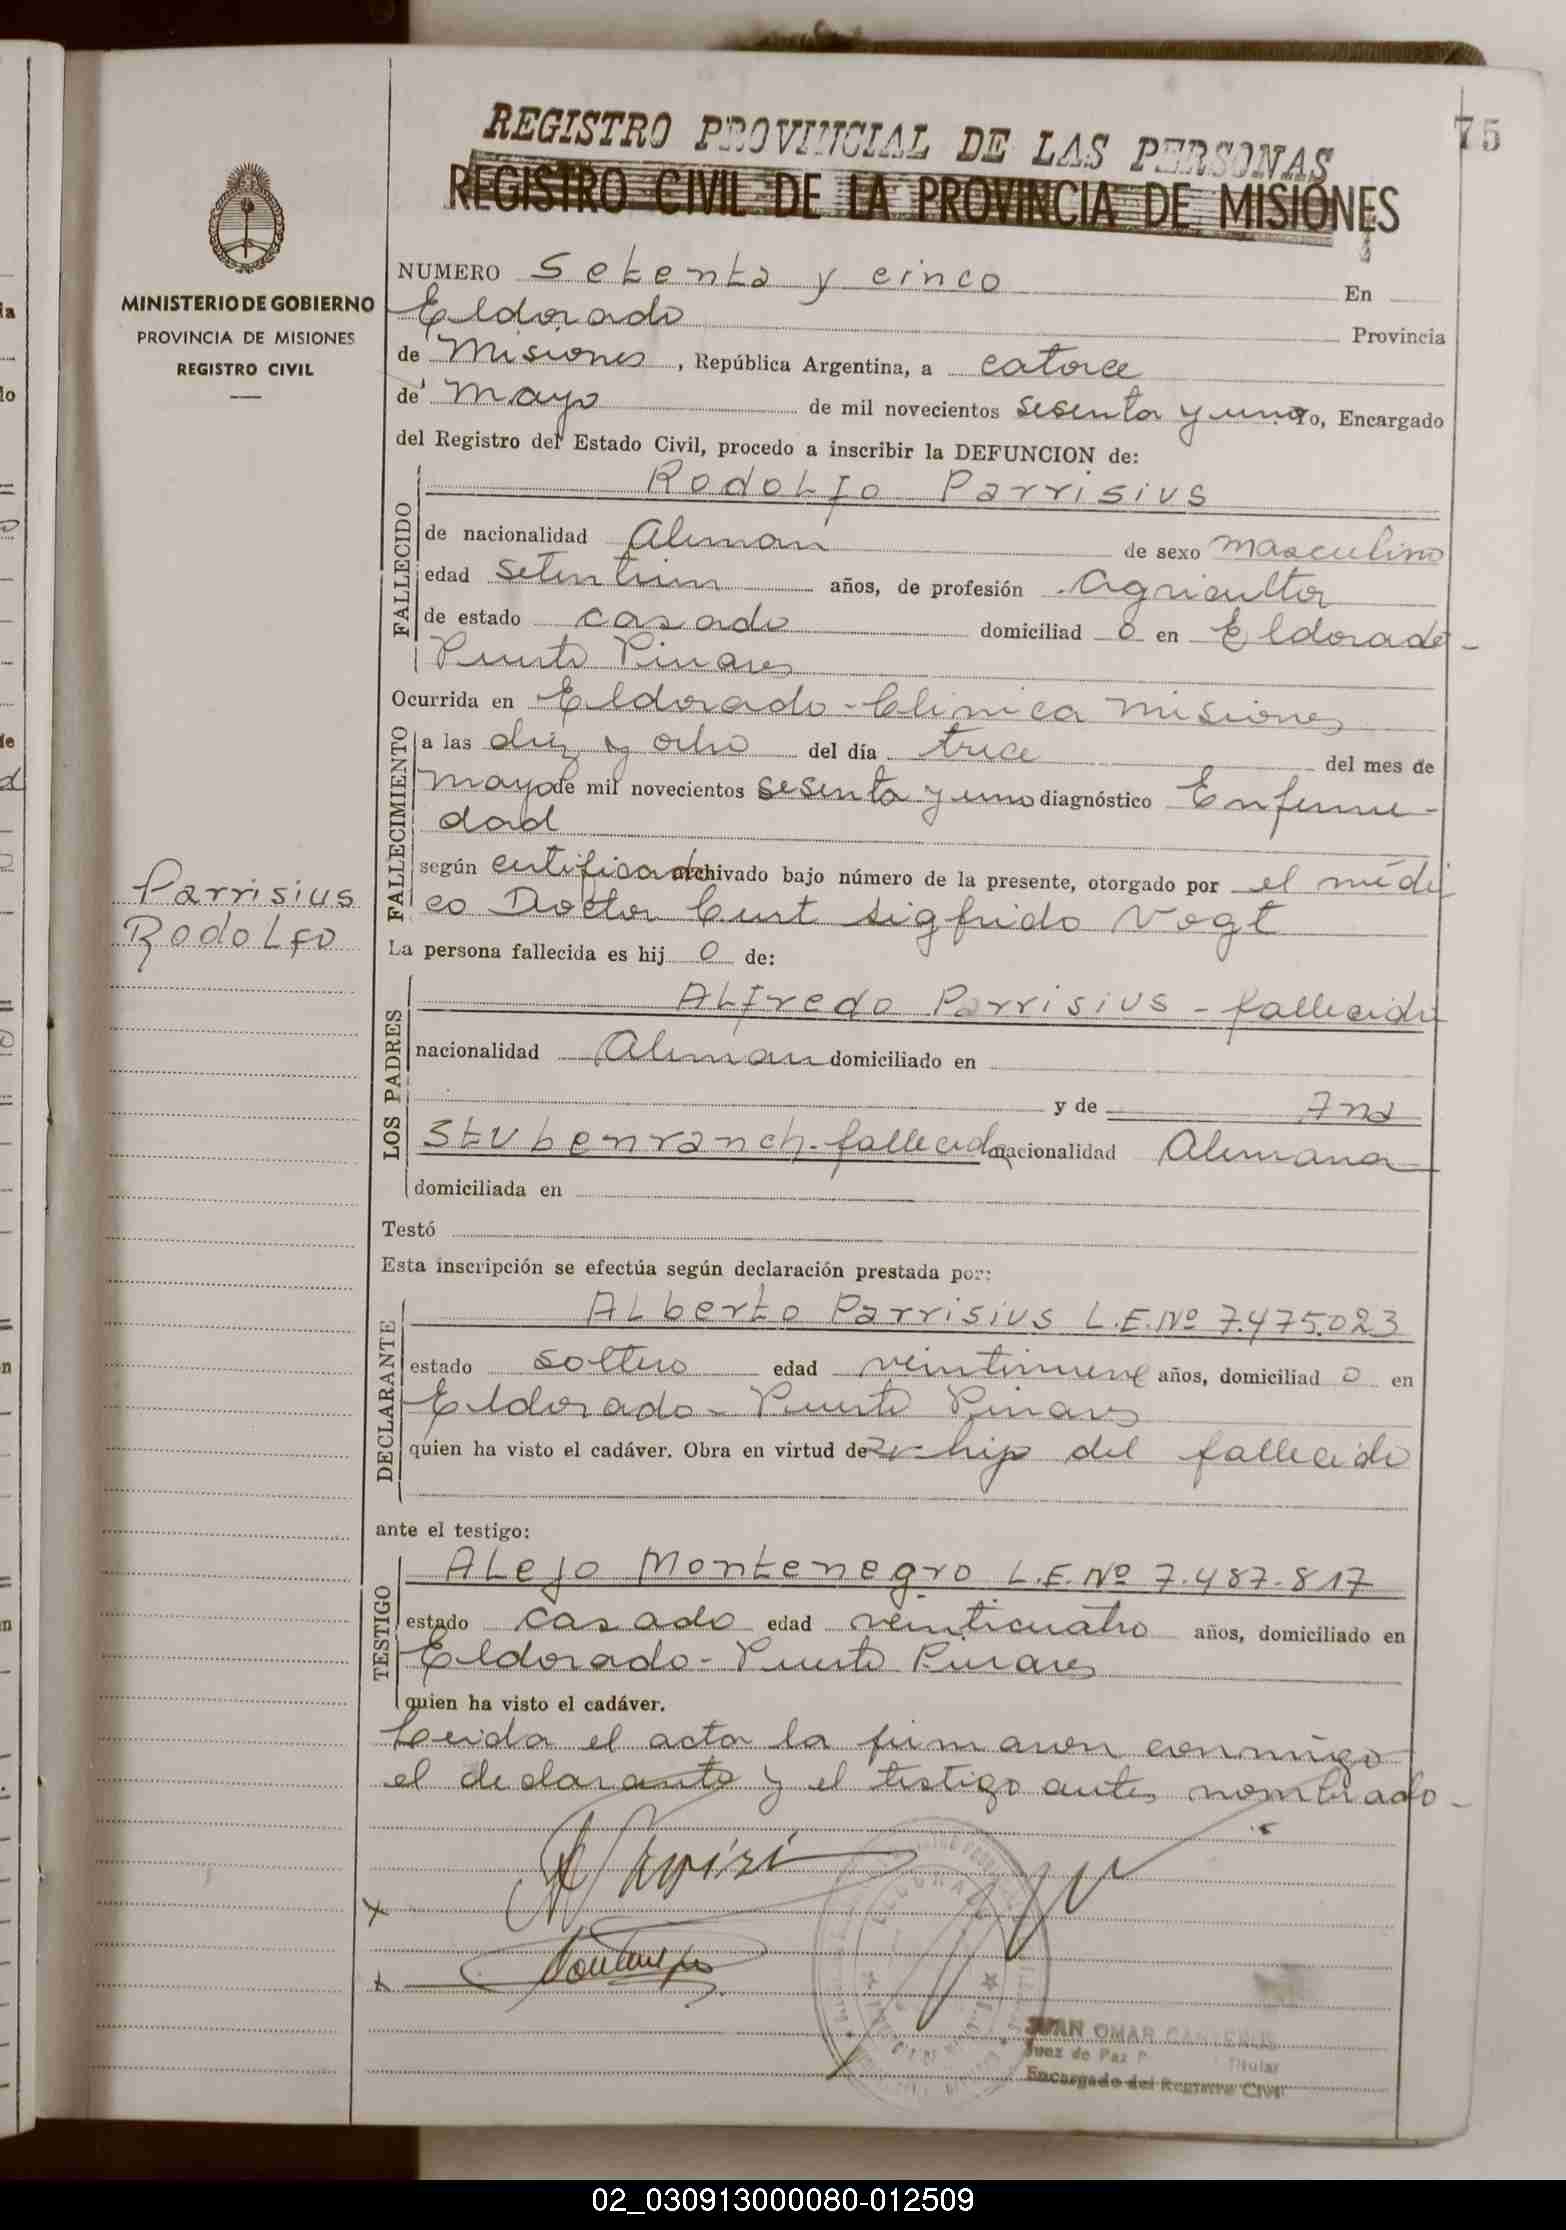 75
REGISTRO PROVINCIAL DE LAS PERSONAS
REGISTRO CIVIL DE LA PROVINCIA DE MISIONES
MINISTERIO DE GOBIERNO
PROVINCIA DE MISIONES
REGISTRO CIVIL
NUMERO Setenta y cinco En
Eldorado Provincia
de Misiones, República Argentina, a catorce
de Mayo de mil novecientos sesenta y uno Yo, Encargado
del Registro del Estado Civil, procedo a inscribir la DEFUNCION de:
FALLECIDO
Rodolfo Parrisius
de nacionalidad Aleman de sexo masculino
edad setentiun años, de profesión Agricultor
de estado casado domiciliad o en Eldorado-
Puerto Pinares
Ocurrida en Eldorado-Clinica Misiones
FALLECIMIENTO
a las diez y ocho del día trece del mes de
mayo de mil novecientos sesenta y uno diagnóstico Enferme-
dad
según certificado archivado bajo número de la presente, otorgado por el médi
co Doctor Curt Sigfrido Vogt
Parrisius
Rodolfo
La persona fallecida es hij o de:
LOS PADRES
Alfredo Parrisius - fallecido
nacionalidad Aleman domiciliado en
y de Ana
Stubenranch-fallecida nacionalidad Alemana
domiciliada en
Testó
Esta inscripción se efectúa según declaración prestada por:
DECLARANTE
Alberto Parrisius L.E.Nº 7.475.023
estado soltero edad veintinueve años, domiciliad o en
Eldorado-Puerto Pinares
quien ha visto el cadáver. Obra en virtud de ser hijo del fallecido
ante el testigo:
TESTIGO
Alejo Montenegro L.E.Nº 7.487.817
estado casado edad veinticuatro años, domiciliado en
Eldorado-Puerto Pinares
quien ha visto el cadáver.
Leida el acta la firmaron conmigo
el declarante y el testigo antes nombrado-
x
x
JUAN OMAR
Juez de Paz Titular
Encargado del Registro Civil
02_030913000080-012509